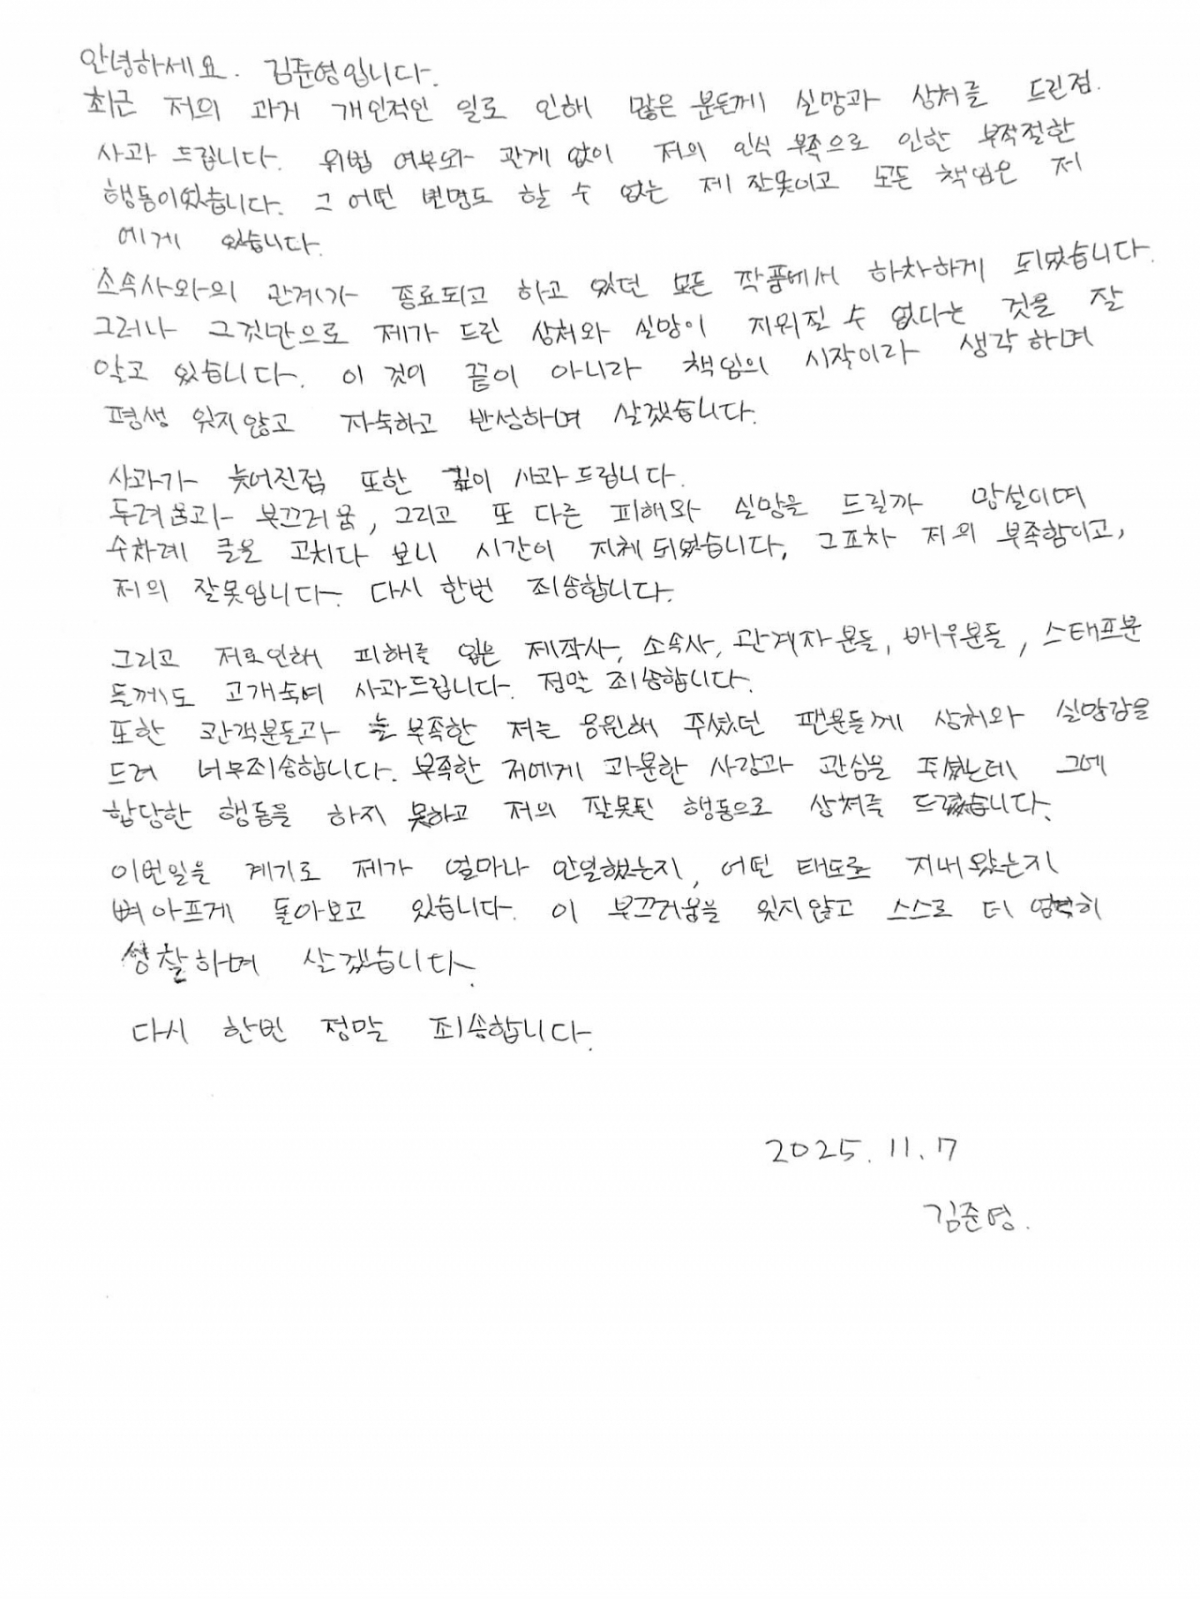 안녕하세요. 김준영입니다.
최근 저의 과거 개인적인 일로 인해 많은 분들께 실망과 상처를 드린점.
사과 드립니다. 위법 여부와 관계 없이 저의 인식 부족으로 인한 부적절한
행동이었습니다. 그 어떤 변명도 할 수 없는 제 잘못이고 모든 책임은 저
에게 있습니다.
소속사와의 관계가 종료되고 하고 있던 모든 작품에서 하차하게 되었습니다.
그러나 그것만으로 제가 드린 상처와 실망이 지워질 수 없다는 것을 잘
알고 있습니다. 이 것이 끝이 아니라 책임의 시작이라 생각하며
평생 잊지않고 자숙하고 반성하며 살겠습니다.
사과가 늦어진점 또한 깊이 사과드립니다.
두려움과 부끄러움, 그리고 또 다른 피해와 실망을 드릴까 망설이며
수차례 글을 고치다 보니 시간이 지체 되었습니다, 그조차 저의 부족함이고,
저의 잘못입니다. 다시 한번 죄송합니다.
그리고 저로인해 피해를 입은 제작사, 소속사, 관계자분들, 배우분들, 스태프분
들께도 고개숙여 사과드립니다. 정말 죄송합니다.
또한 관객분들과 늘 부족한 저를 응원해 주셨던 팬분들께 상처와 실망감을
드려 너무죄송합니다. 부족한 저에게 과분한 사랑과 관심을 주셨는데 그에
합당한 행동을 하지 못하고 저의 잘못된 행동으로 상처를 드렸습니다.
이번일을 계기로 제가 얼마나 안일했는지, 어떤 태도로 지내왔는지
뼈아프게 돌아보고 있습니다. 이 부끄러움을 잊지않고 스스로 더 엄격히
성찰하며 살겠습니다.
다시 한번 정말 죄송합니다.
2025. 11. 7
김준영.